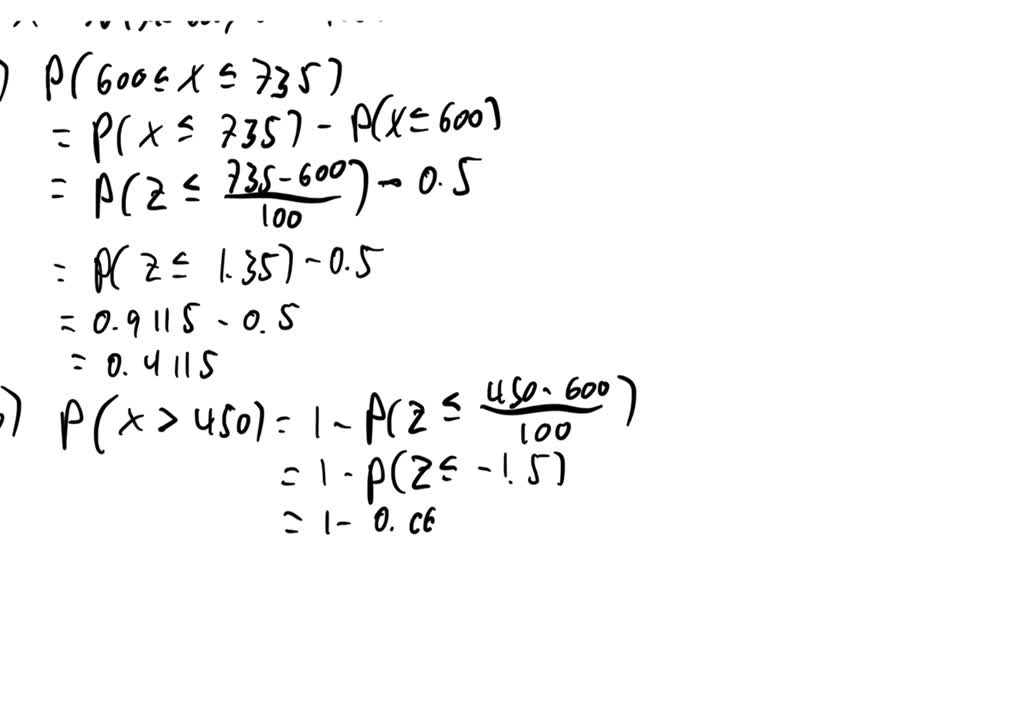 ) P(600 ≤ x ≤ 735)
= P(x ≤ 735) - P(x ≤ 600)
= P(Z ≤ (735-600)/100) - 0.5
= P(Z ≤ 1.35) - 0.5
= 0.9115 - 0.5
= 0.4115
) P(x > 450) = 1 - P(Z ≤ (450-600)/100)
= 1 - P(Z ≤ -1.5)
= 1 - 0.